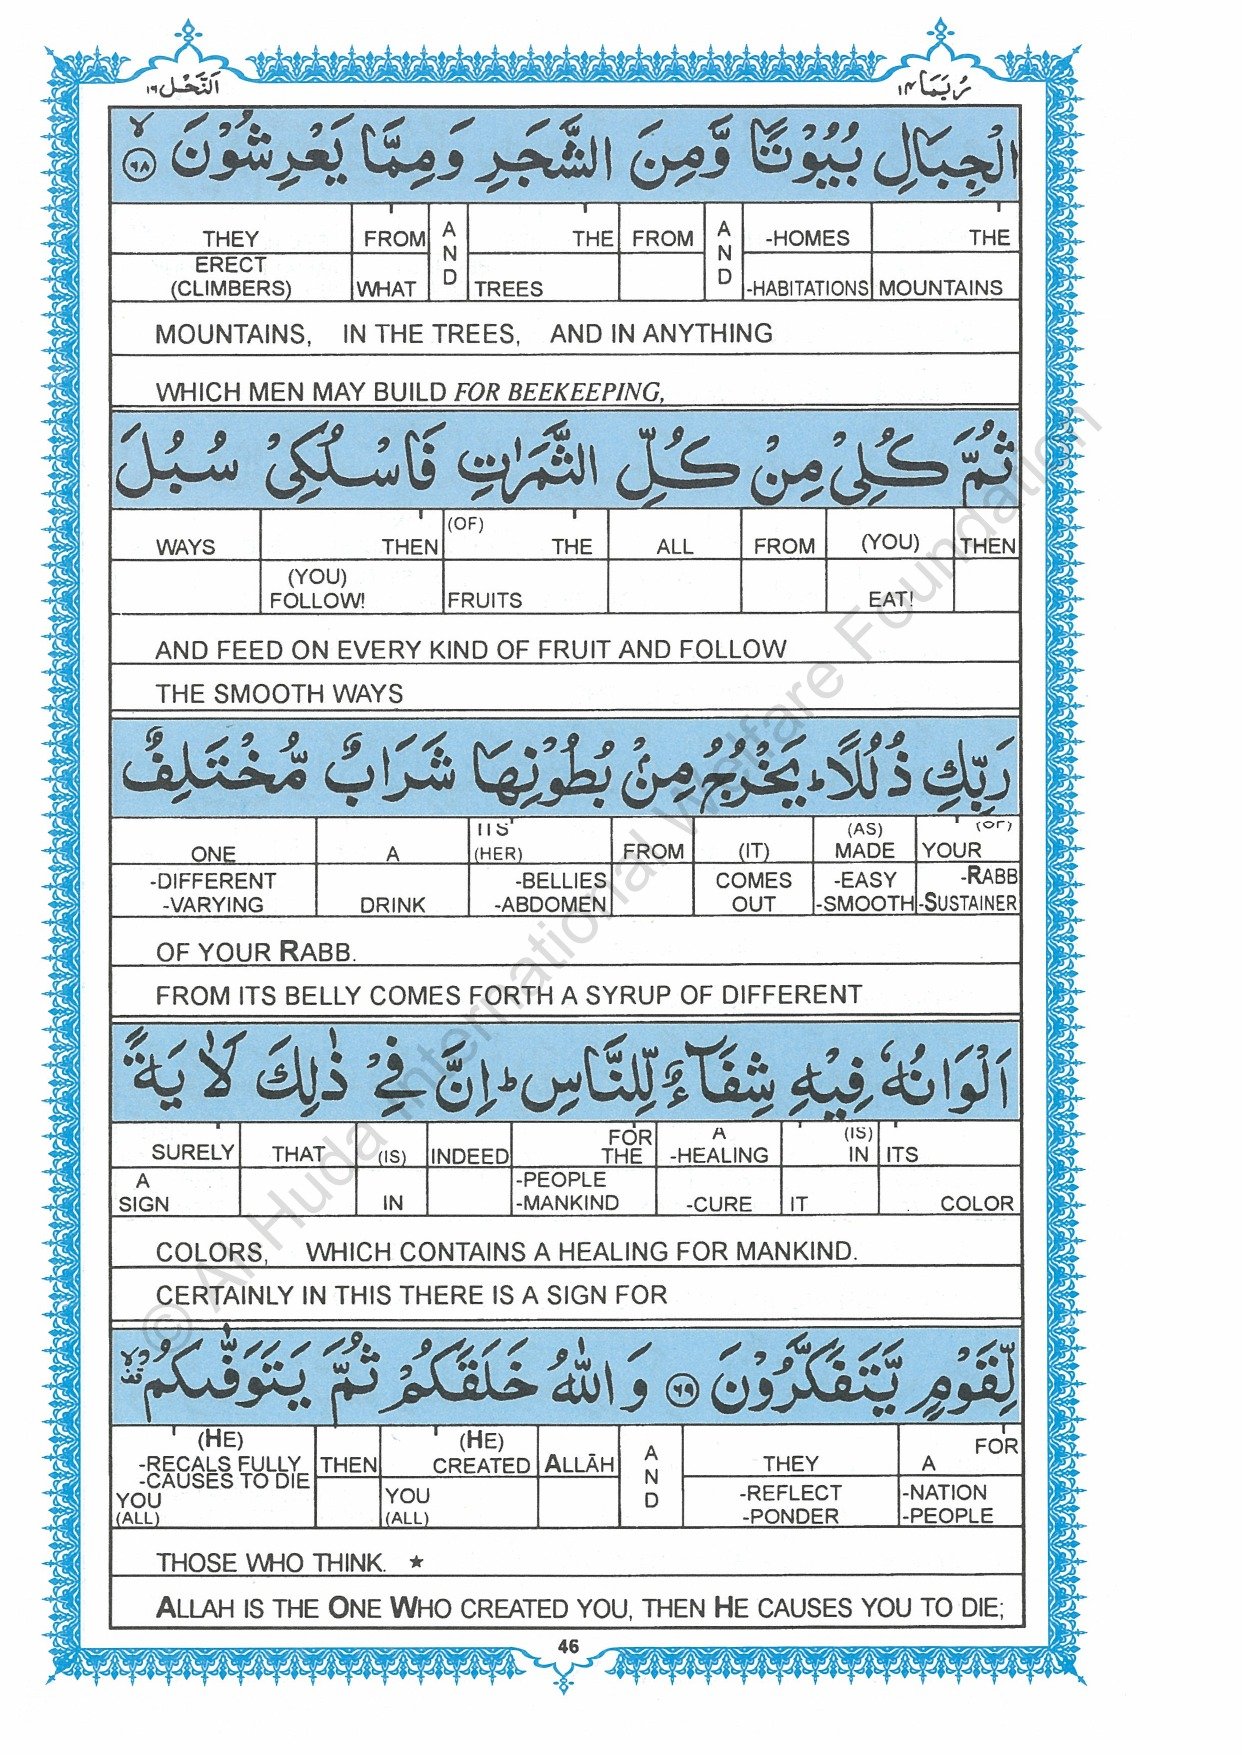 اَلنَّحْل ١٦ رُبَمَا ١٤
الْجِبَالِ بُيُوْتًا وَّمِنَ الشَّجَرِ وَمِمَّا يَعْرِشُوْنَ ﴿٦٨﴾ لا
THEY FROM AND THE FROM AND -HOMES THE
ERECT (CLIMBERS) WHAT TREES -HABITATIONS MOUNTAINS
MOUNTAINS, IN THE TREES, AND IN ANYTHING
WHICH MEN MAY BUILD FOR BEEKEEPING,
ثُمَّ كُلِىْ مِنْ كُلِّ الثَّمَرٰتِ فَاسْلُكِىْ سُبُلَ
WAYS THEN (OF) THE ALL FROM (YOU) THEN
(YOU) FOLLOW! FRUITS EAT!
AND FEED ON EVERY KIND OF FRUIT AND FOLLOW
THE SMOOTH WAYS
رَبِّكِ ذُلُلًا ؕ يَخْرُجُ مِنْۢ بُطُوْنِهَا شَرَابٌ مُّخْتَلِفٌ
ONE A ITS (HER) FROM (IT) (AS) MADE (OF) YOUR
-DIFFERENT -VARYING DRINK -BELLIES -ABDOMEN COMES OUT -EASY -SMOOTH -RABB -SUSTAINER
OF YOUR RABB.
FROM ITS BELLY COMES FORTH A SYRUP OF DIFFERENT
اَلْوَانُهٗ فِيْهِ شِفَآءٌ لِّلنَّاسِ ؕ اِنَّ فِىْ ذٰلِكَ لَاٰيَةً
SURELY THAT (IS) INDEED FOR THE A -HEALING (IS) IN ITS
A SIGN IN -PEOPLE -MANKIND -CURE IT COLOR
COLORS, WHICH CONTAINS A HEALING FOR MANKIND.
CERTAINLY IN THIS THERE IS A SIGN FOR
لِّقَوْمٍ يَّتَفَكَّرُوْنَ ﴿٦٩﴾ وَاللّٰهُ خَلَقَكُمْ ثُمَّ يَتَوَفّٰىكُمْ
(HE) -RECALS FULLY -CAUSES TO DIE THEN (HE) CREATED ALLĀH AND THEY A FOR
YOU (ALL) YOU (ALL) -REFLECT -PONDER -NATION -PEOPLE
THOSE WHO THINK. ★
ALLAH IS THE ONE WHO CREATED YOU, THEN HE CAUSES YOU TO DIE;
46
© Al Huda International Welfare Foundation